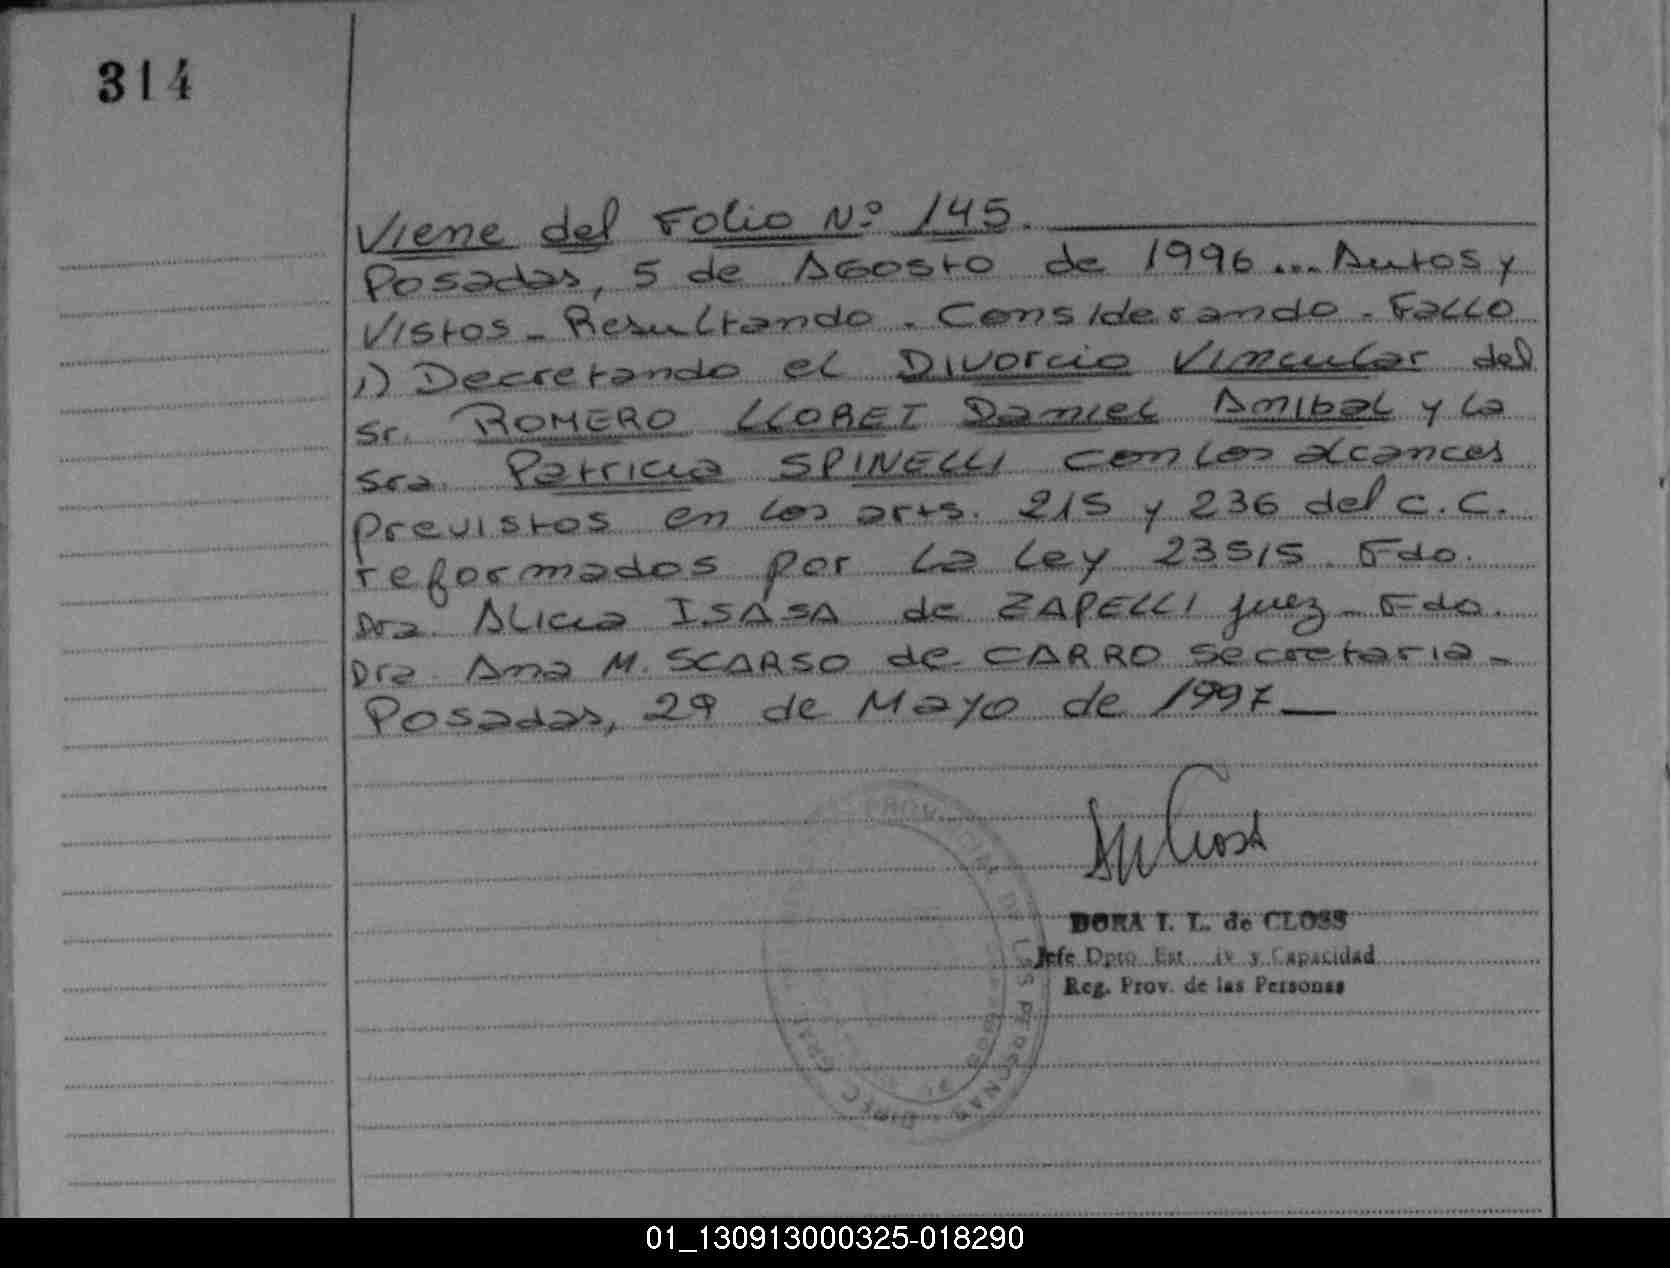 314
Viene del Folio Nº 145.
Posadas, 5 de Agosto de 1996... Autos y
Vistos - Resultando - Considerando - Fallo
1) Decretando el Divorcio Vincular del
Sr. ROMERO LLORET Daniel Anibal y la
Sra. Patricia SPINELLI con los alcances
previstos en los arts. 215 y 236 del C.C.
reformados por la Ley 23515. Fdo.
Dra. Alicia ISASA de ZAPELLI juez - Fdo.
Dra. Ana M. SCARSO de CARRO secretaria -
Posadas, 29 de Mayo de 1997
DORA I. L. de CLOSS
Jefe Dpto. Est. y Capacidad
Reg. Prov. de las Personas
01_130913000325-018290